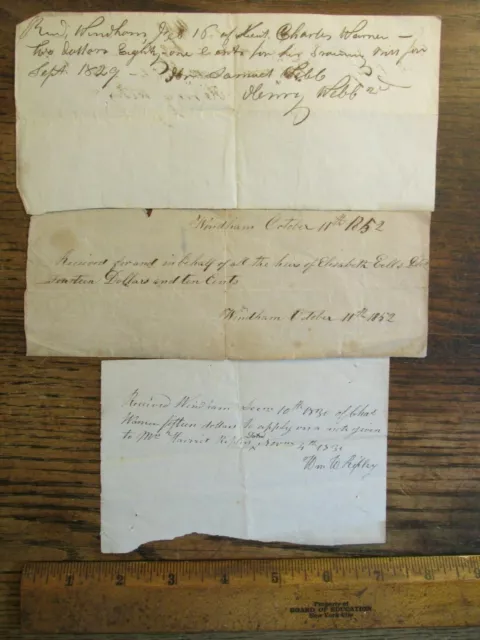 Windham, 16 of Lieut Charles Warner -
Two Dollars Eighty one Cents for
Sept. 1829 - for Samuel Webb
Henry Webb 2d
Windham October 11th 1852
Received for and in behalf of all the heirs of Elisabeth
Fourteen Dollars and ten Cents
Windham October 11th 1852
Received Windham 10th 1830 of Chas
Warner fifteen dollars to apply on a note given
to Mrs Harriet Dated Novm 4th
Wm C Ripley
1 2 3 4 5 6 7 8 9
Property of
BOARD OF EDUCATION
New York City